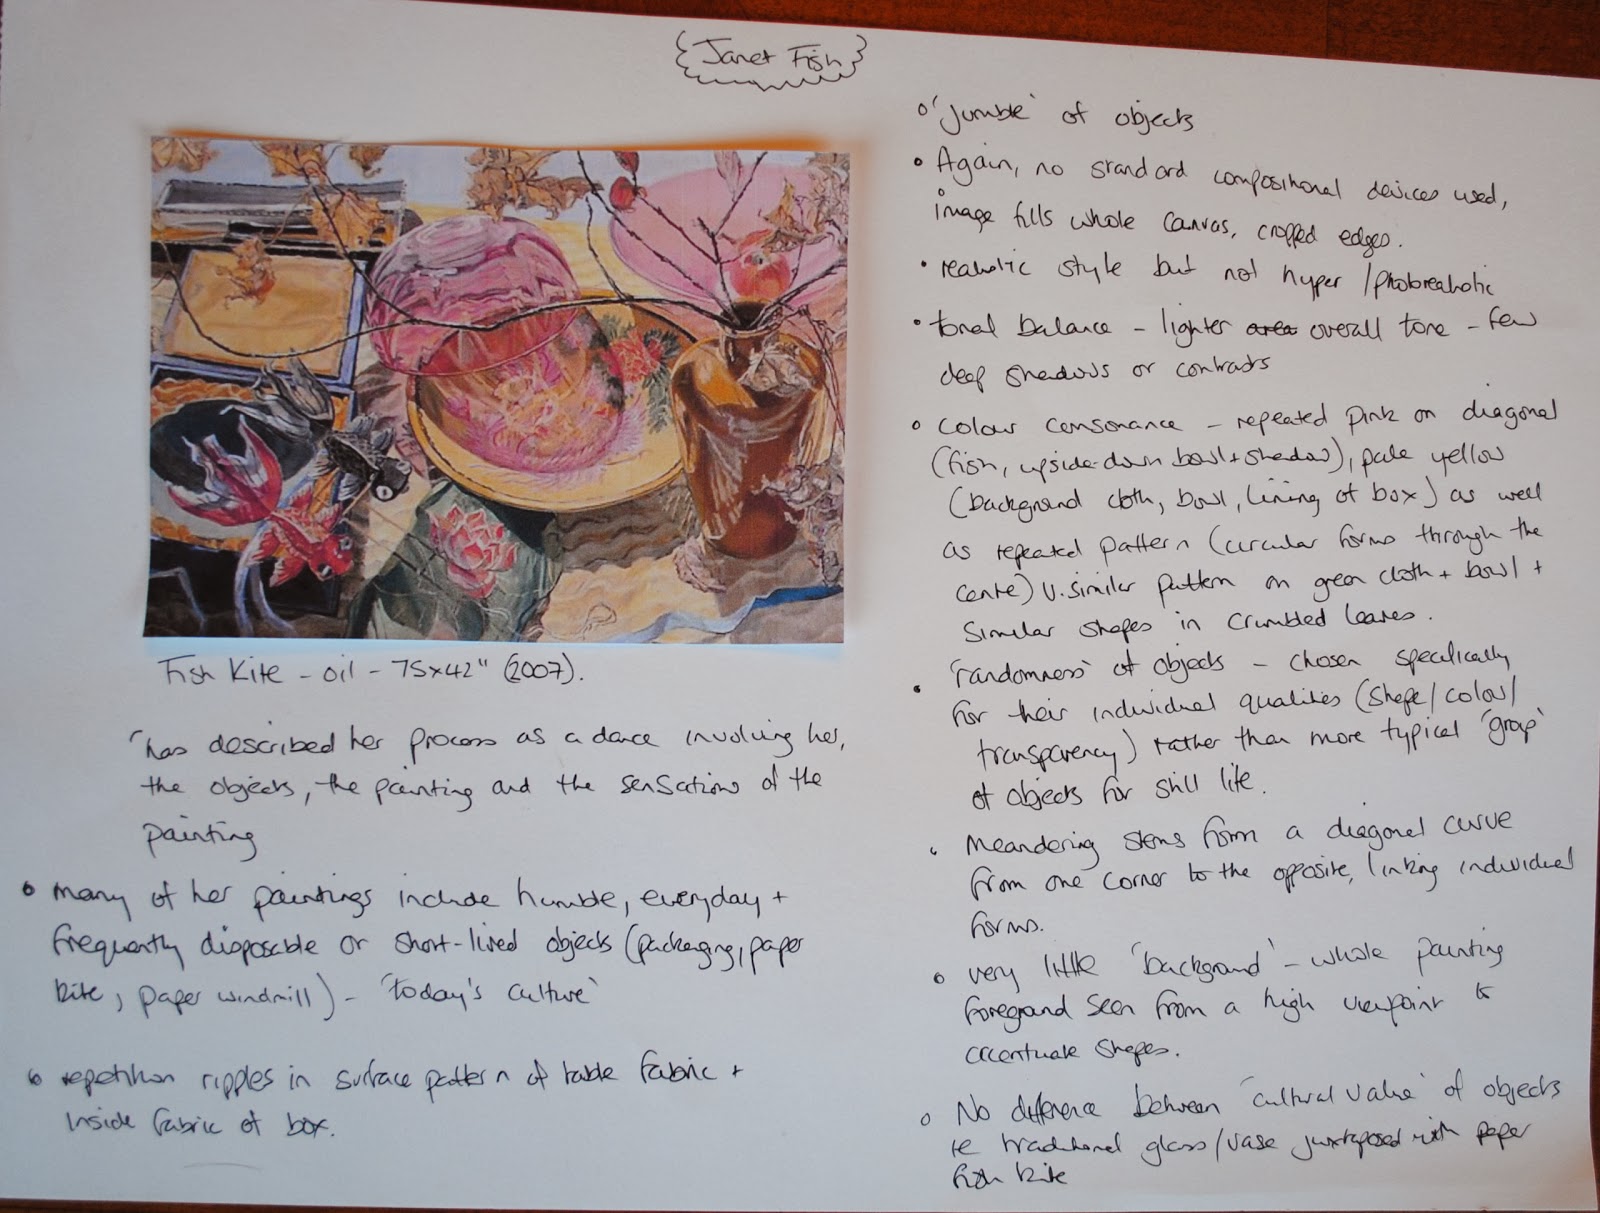 Janet Fish
Fish Kite - oil - 75x42" (2007).
'has described her process as a dance involving her,
the objects, the painting and the sensations of the
painting
• many of her paintings include humble, everyday +
frequently disposable or short-lived objects (packaging, paper
kite, paper windmill) - 'today's culture'
• repetition ripples in surface pattern of table fabric +
inside fabric of box.
• 'jumble' of objects
• Again, no standard compositional devices used,
image fills whole canvas, cropped edges.
• realistic style but not hyper/photorealistic
• tonal balance - lighter area overall tone - few
deep shadows or contrasts
• colour consonance - repeated pink on diagonal
(fish, upside-down bowl + shadow), pale yellow
(background cloth, bowl, lining of box) as well
as repeated pattern (circular forms through the
centre) v. similar pattern on green cloth + bowl +
similar shapes in crumbled leaves.
• 'randomness' of objects - chosen specifically
for their individual qualities (shape/colour/
transparency) rather than more typical 'group'
of objects for still life.
• Meandering stems form a diagonal curve
from one corner to the opposite, linking individual
forms.
• very little 'background' - whole painting
foreground seen from a high viewpoint to
accentuate shapes.
• No difference between 'cultural value' of objects
ie traditional glass/vase juxtaposed with paper
fish kite